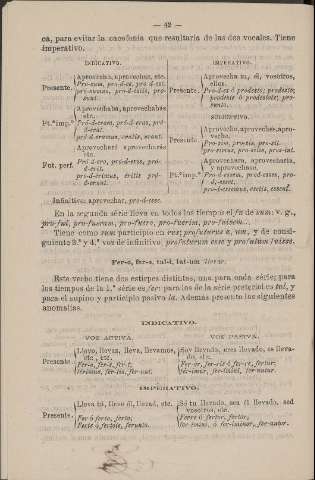 — 42 —
ca, para evitar la cacofonía que resultaría de las dos vocales. Tiene
imperativo.
INDICATIVO.
Presente.
Aprovecho, aprovechas, etc.
Pro-sum, pro-d-es, pro-d-est.
pró-sumus, pro-d-estis, pro-
sunt.
Pt.º imp.º
Aprovechaba, aprovechabas
etc.
Pró-d-eram, pró-d-eras, pró-
d-erat.
pró-d-erámus, erátis, erant.
Fut. perf.
Aprovecharé, aprovecharás
etc.
Pró-d-ero, pró-d-eris, pró-
d-erit.
pró-d-érimus, éritis, pró-
d-erunt.
IMPERATIVO.
Presente.
Aprovecha tú, él, vosotros,
ellos.
Pro-d-es ó prodesto; prodesto;
prodeste ó prodestote; pro-
sunto.
SUBJUNTIVO.
Presente.
Aproveche, aproveches, apro-
veche.
Pro-sim, pro-sis, pro-sit.
pro-simus, pro-sitis, pro-sint.
Pt.º imp.º
Aprovechara, aprovecharía,
y aprovechase.
Pro-d-essem, prod-esses, pro-
d-esset.
pro-d-essemus, essetis, essent.
Infinitivo: aprovechar, pro-d-esse.
En la segunda série lleva en todos los tiempos el fu de sum: v. g.,
pro-fui, pro-fueram, pro-fuero, pro-fuerim, pro-fuissem.
Tiene como sum participio en rus; profuturus a, um, y de consi-
guiente 3.ª y 4.ª voz de infinitivo, profuturum esse y profuturum fuisse.
Fer-o, fer-s, tul-i, lat-um llevar.
Este verbo tiene dos estirpes distintas, una para cada série; para
los tiempos de la 1.ª série es fer: para los de la série pretérita es tul, y
para el supino y participio pasivo la. Además presenta las siguientes
anomalías.
INDICATIVO.
VOZ ACTIVA.
Presente
Llevo, llevas, lleva, llevamos,
etc., etc.
Fer-o, fer-s, fer-t;
fer-imus, fer-tis, fer-unt.
VOZ PASIVA.
Soy llevado, eres llevado, es lleva-
do, etc.
Fer-or, fer-ris ó fer-re, fertur;
fer-imur, fer-imini, fer-untur.
IMPERATIVO.
Presente.
Lleva tú, lleve él, llevad, etc.
Fer ó ferto, ferto;
Ferte ó fertote, ferunto.
Sé tú llevado, sea él llevado, sed
vosotros, etc.
Ferre ó fertor, fertor;
fer-imini, ó fer-iminor, fer-untur.